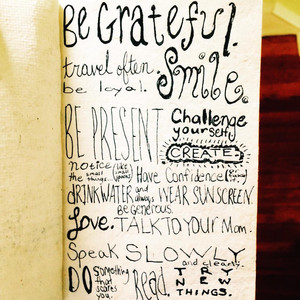 Be Grateful.
travel often. Smile.
be loyal.
BE PRESENT Challenge
yourself
CREATE.
notice the small things. (like this) Have Confidence
DRINK WATER and always WEAR SUNSCREEN.
BE GENEROUS.
Love. TALK TO YOUR Mom.
Speak SLOWLY
and clearly.
DO something that scares you. Read. TRY NEW THINGS.